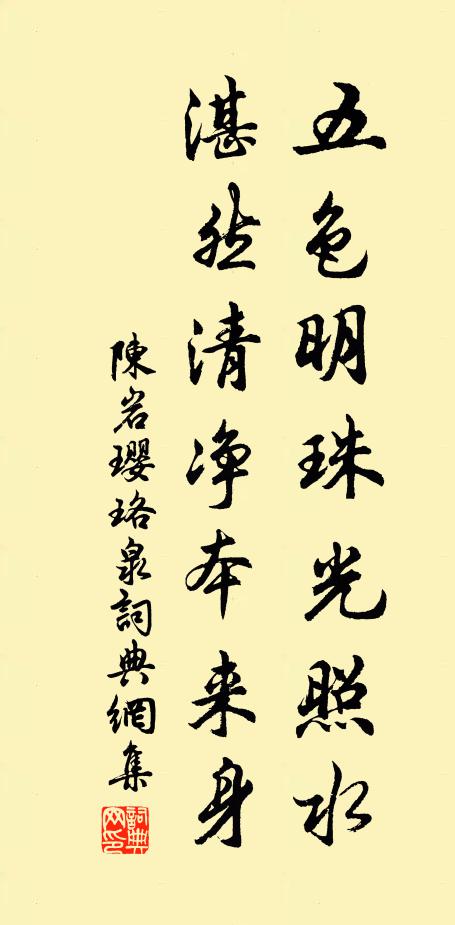 五色明珠光照水
湛然清净本来身
陳岩瓔珞泉詞典網集
詞典網印